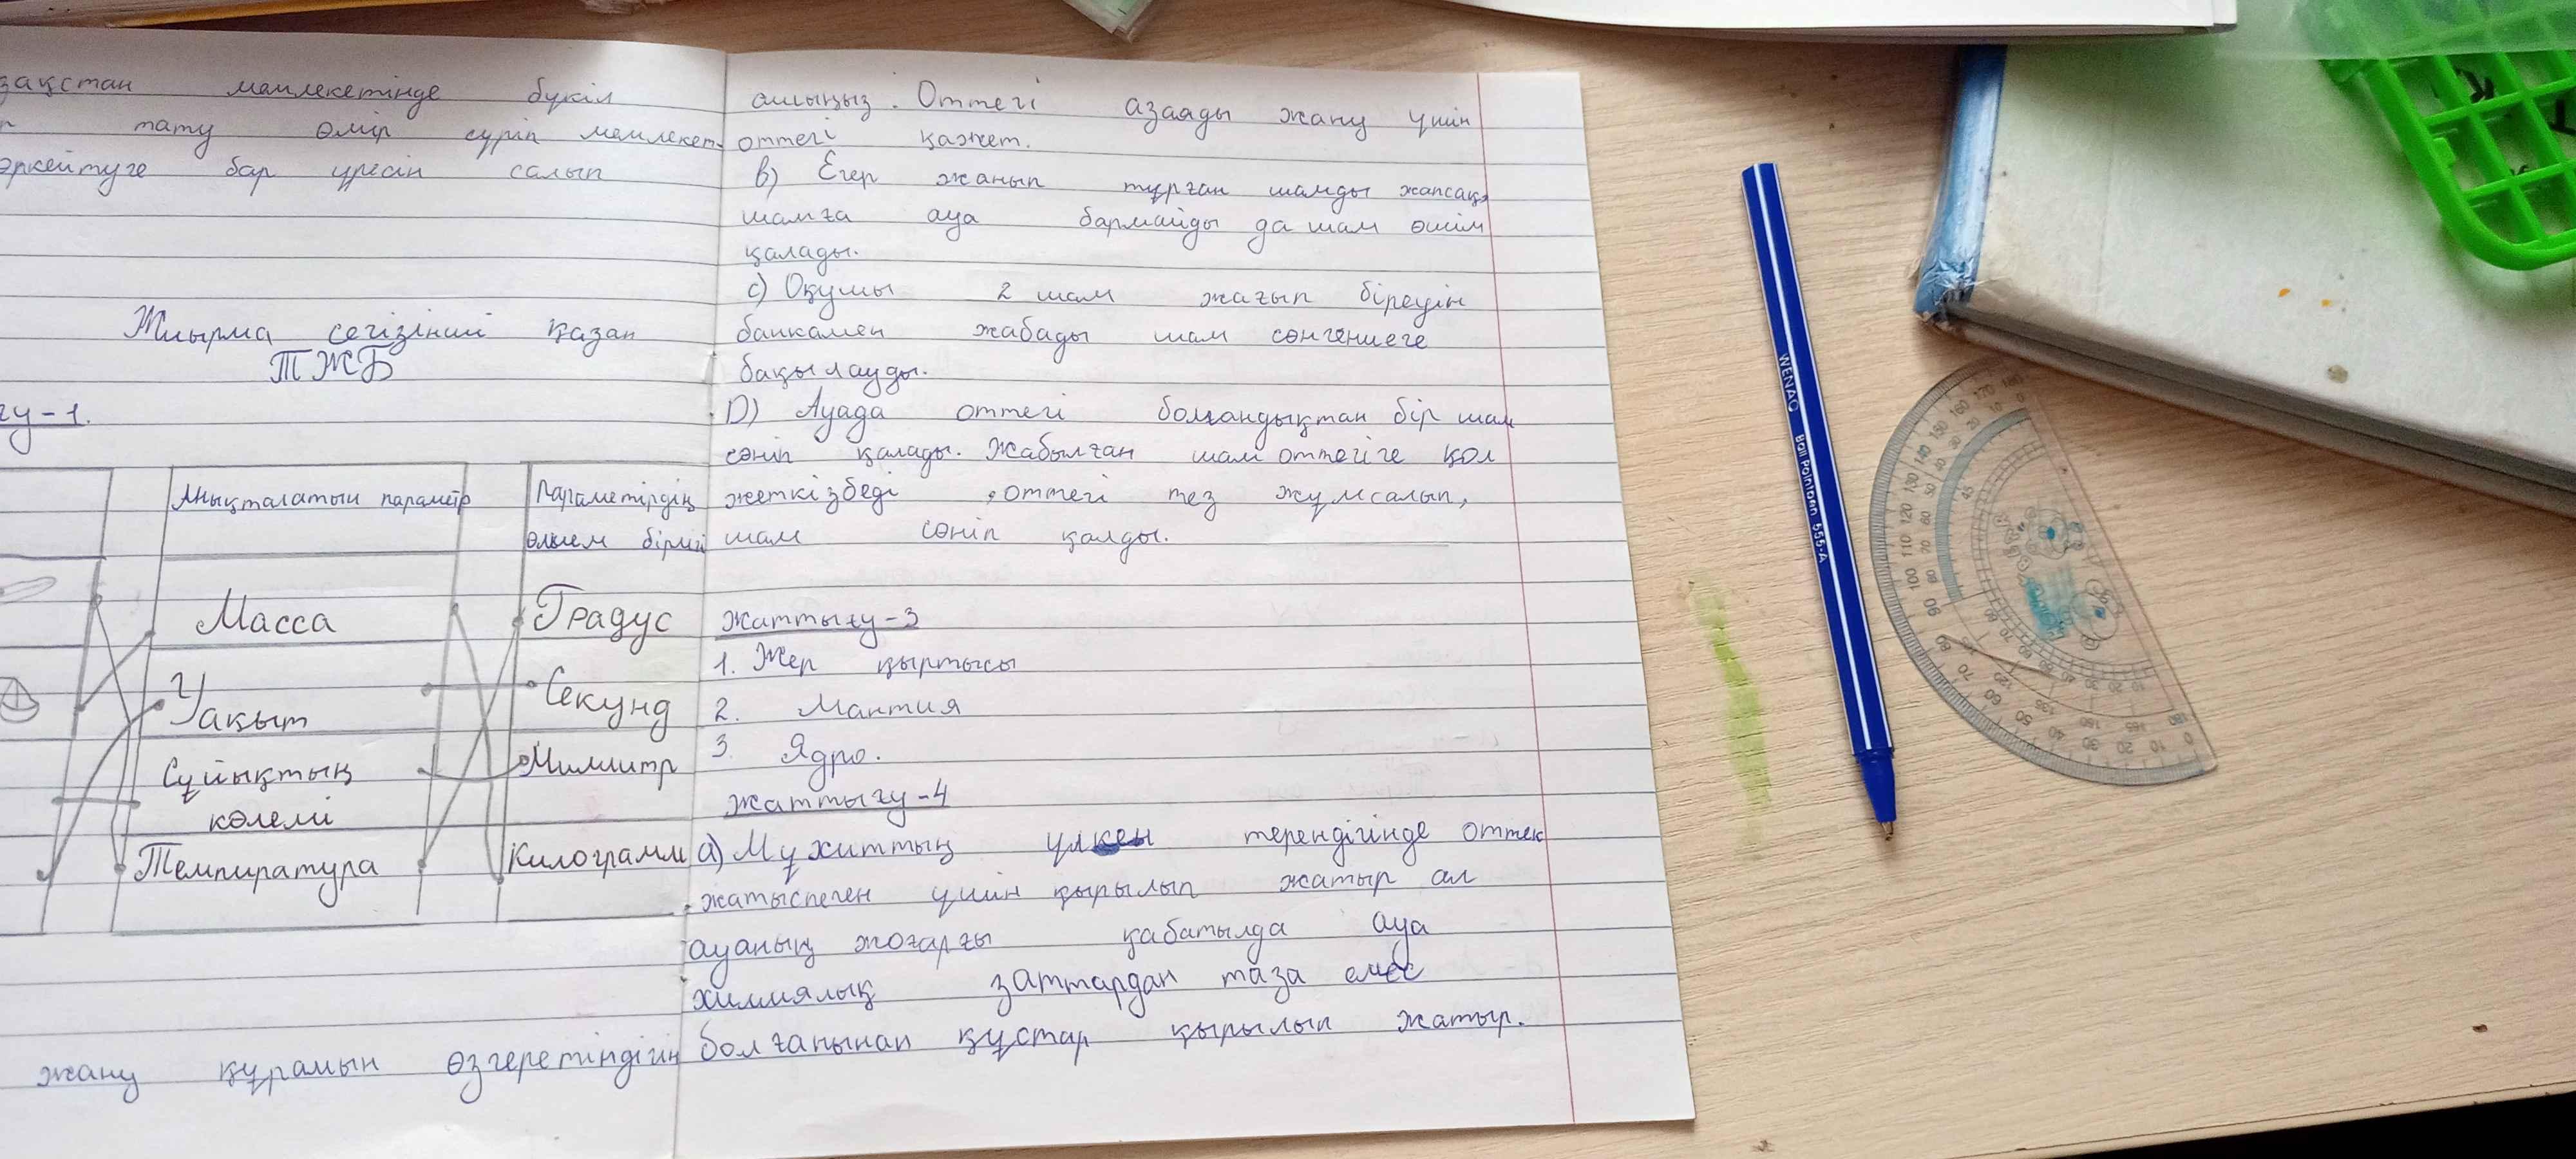 зақстан мемлекетінде бүкіл
тату өмір сүріп мемлекет-
өркейтуге бар үлесін салып
Жиырма сегізінші қазан
ТЖБ
гу-1.
Анықталатын параметр
Параметірдің
өлшем бірлігі
Масса
Градус
Уақыт
Секунд
Сұйықтың
көлемі
Миллитр
Темпиратура
Килограмм
жану құрамын өзгеретіндігін
ашыңыз. Оттегі азаяды жану үшін
оттегі қажет.
в) Егер жанып тұрған шамды жапсақ,
шамға ауа бармайды да шам өшіп
қалады.
с) Оқушы 2 шам жағып біреуін
банкамен жабады шам сөнгеншеге
бақылауды.
D) Ауада оттегі болғандықтан бір шам
сөніп қалады. Жабылған шам оттегіге қол
жеткізбеді, оттегі тез жұмсалып,
шам сөніп қалды.
жаттығу-3
1. Жер қыртысы
2. Мантия
3. Ядро.
жаттығу-4
а) Мұхиттың үлкен терендігінде оттек
жатыспеген үшін қырылып жатыр ал
ауаның жоғарғы қабатылда ауа
химиялық заттардан таза емес
болғанынан құстар қырылып жатыр.
WENAO Ball Pointpen 555-A